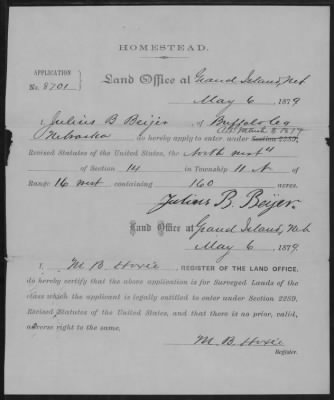 HOMESTEAD.
APPLICATION
No. 8701
Land Office at Grand Island, Neb
May 6, 1879
I, Julius B Beijer, of Buffalo Co
Act March 3 1879
Nebraska do hereby apply to enter under Section 2289,
Revised Statutes of the United States, the North west 4
of Section 14 in Township 11 N of
Range 16 west containing 160 acres.
Julius B. Beijer.
Land Office at Grand Island, Neb
May 6, 1879.
I, M. B. Hoxie, REGISTER OF THE LAND OFFICE,
do hereby certify that the above application is for Surveyed Lands of the
class which the applicant is legally entitled to enter under Section 2289,
Revised Statutes of the United States, and that there is no prior, valid,
adverse right to the same.
M. B. Hoxie
Register.